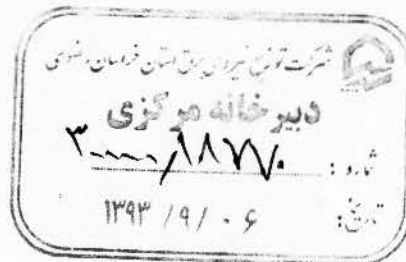 شرکت توزیع نیروی برق استان خراسان رضوی
دبیرخانه مرکزی
شماره : ۳۰۰۰۰/۱۸۷۷۰
تاریخ: ۱۳۹۳ /۹/ ۰۶